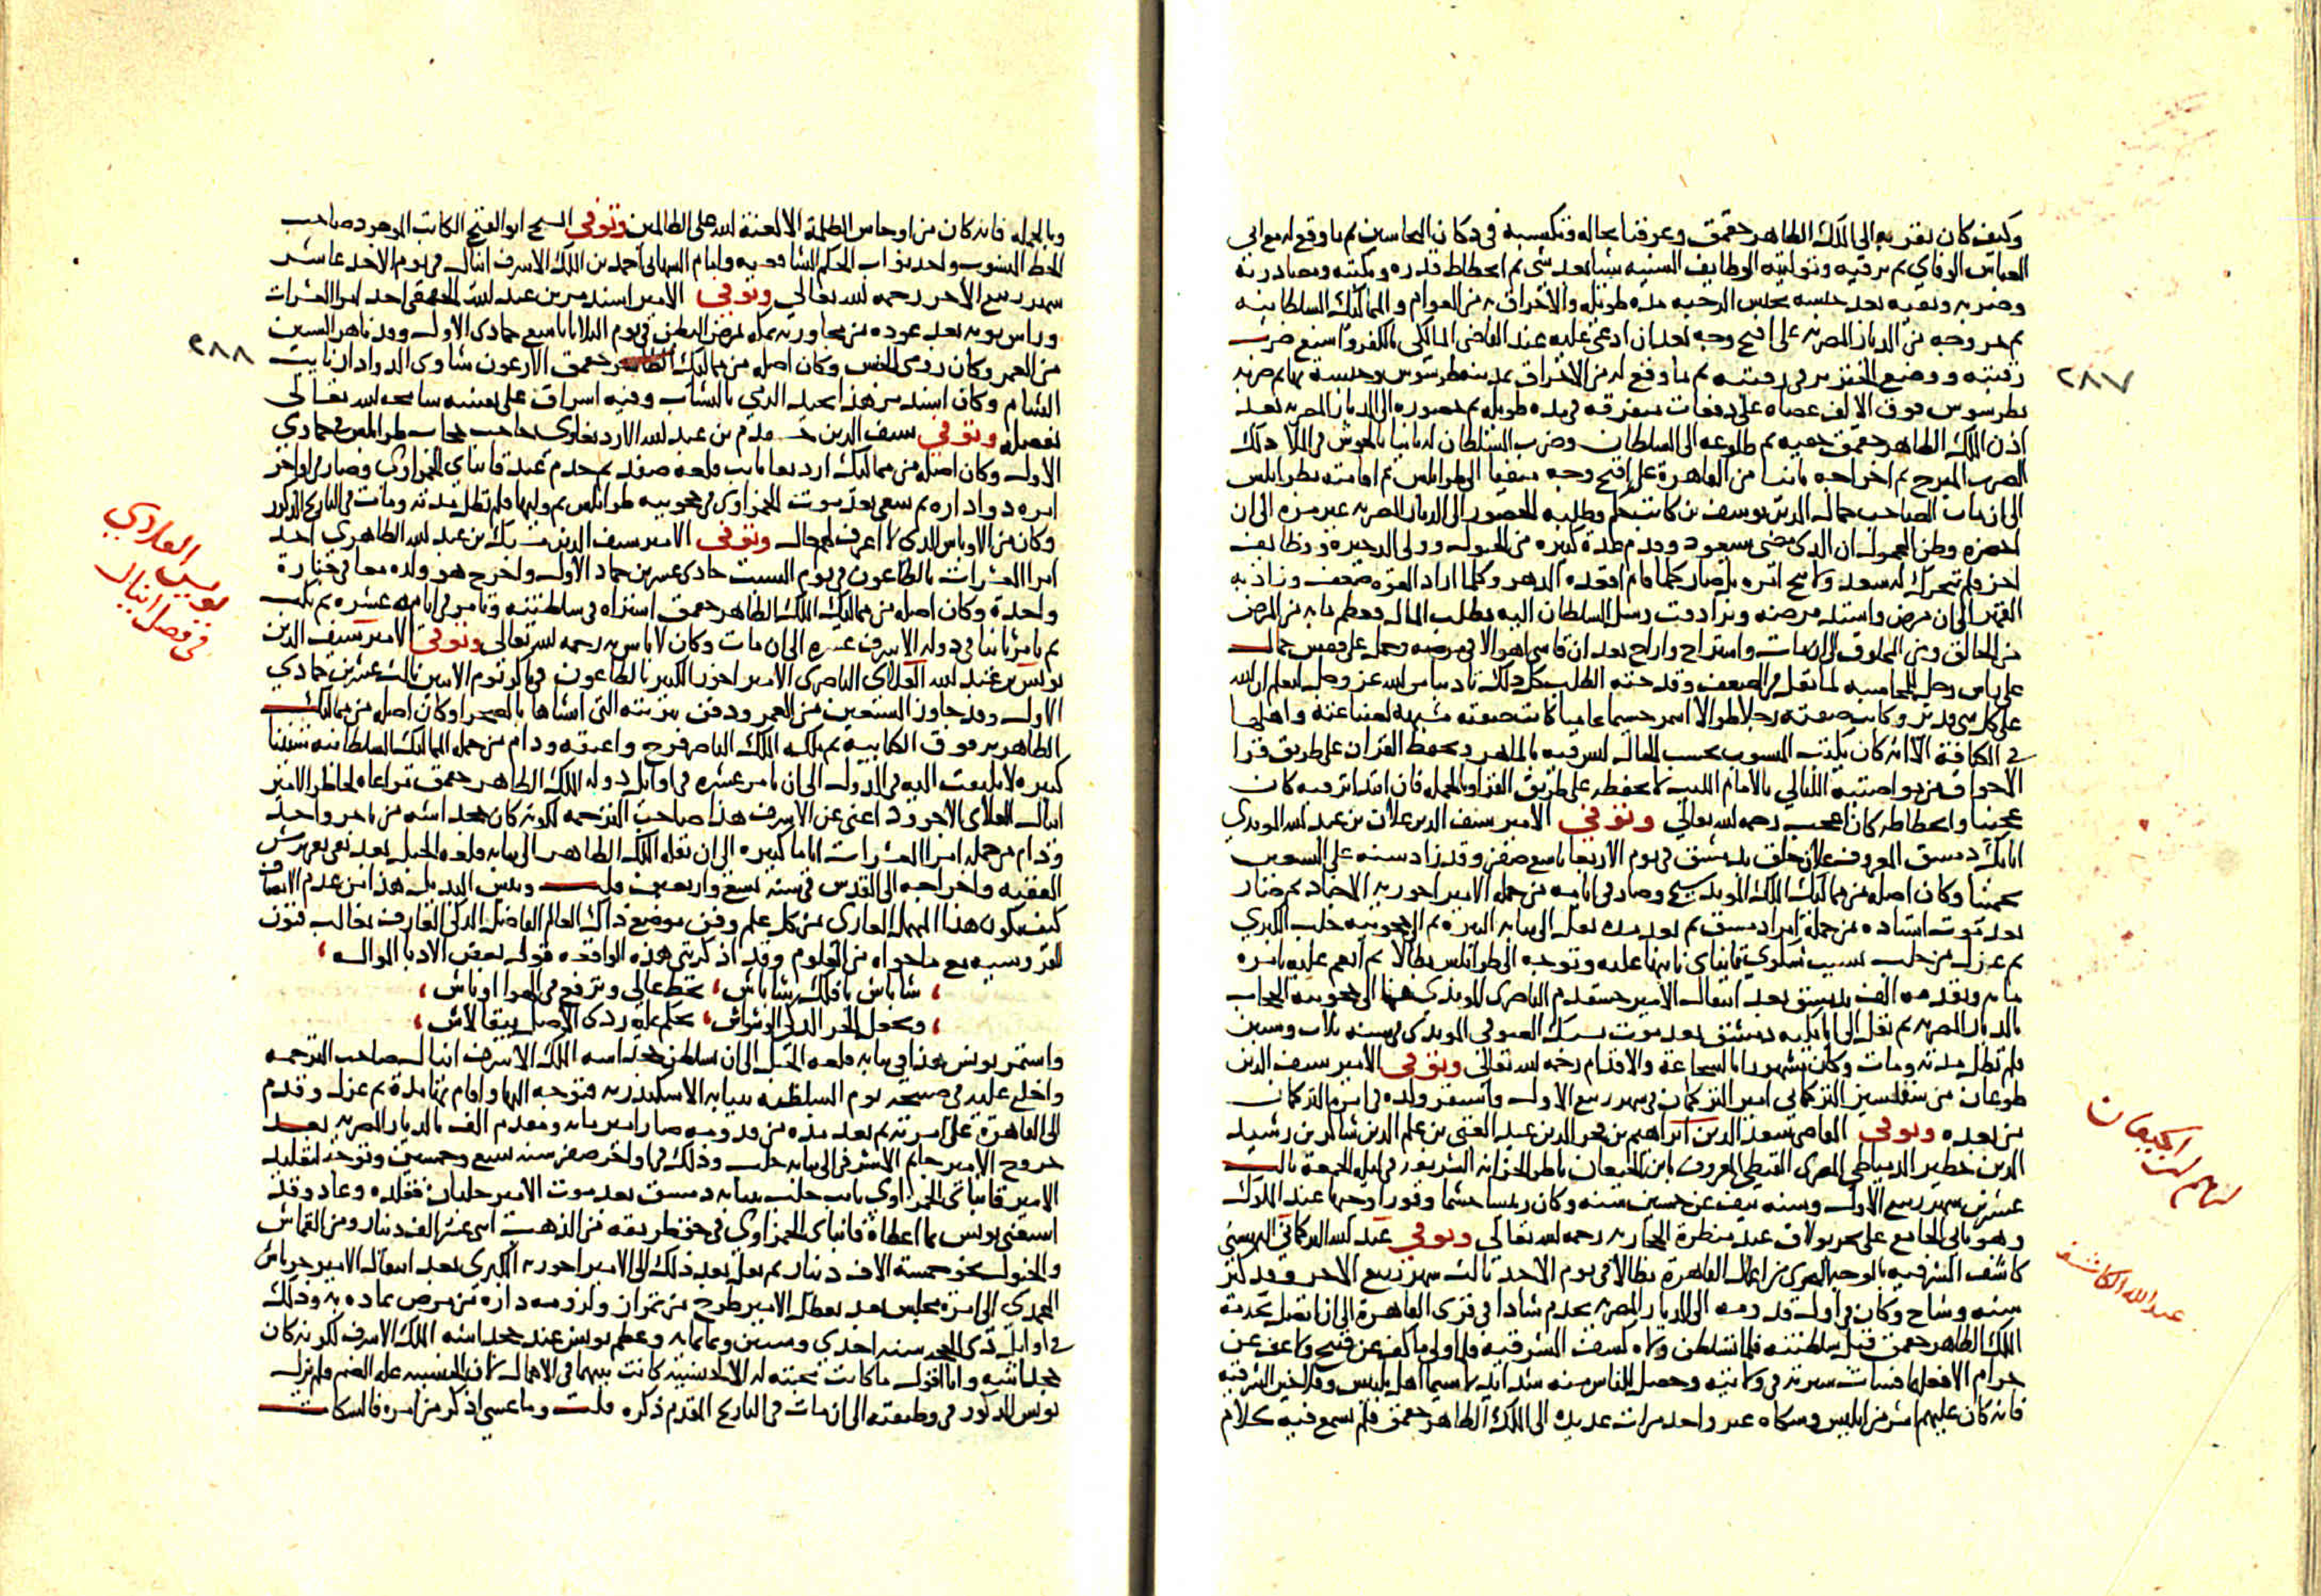 وكيف كان تقربه الى الملك الظاهر جقمق وعرفنا بحاله وتكسبه في دكان النحاسين ثم ما وقع له مع ابي
العباس الوفاي ثم ترقيه وتوليته الوظايف السنيه شيا بعد شي ثم انحطاط قدره ونكبته ومصادرته
وضربه ونفيه بعد حبسه بحبس الرحبه مده طويله والاخراق به من العوام والمماليك السلطانيه
ثم خروجه من الديار المصريه على اقبح وجه بعد ان ادعي عليه عند القاضي المالكي بالكفر واشيع ضرب
رقبته ووضع الجنزير في رقبته ثم ما وقع له من الاخراق بمدينة طرسوس وحبسه بها ثم ضربه
بطرسوس فوق الالف عصاه على دفعات متفرقه في مده طويله ثم حضوره الى الديار المصريه بعد
اذن الملك الظاهر جقمق ثم طلوعه الى السلطان وضرب السلطان له ثانيا بالحوش في الملا ذلك
الضرب المبرح ثم اخراجه ثانيا من القاهرة على اقبح وجه منفيا الى طرابلس ثم اقامته بطرابلس
الى ان مات الصاحب جمال الدين يوسف بن كاتب جكم وطلبه للحضور الى الديار المصريه غير مره الى ان
حضر وظن الجهول ان الذي مضى سيعود وقدم
٢٨٧
اخر فلم يتحرك له سعد ولا نتج امره بل صار كلما قام اقعده الدهر وكلما اراد القوه ضعف وزاد به
القهر الى ان مرض واشتد مرضه وترادفت رسل السلطان اليه بطلب المال وعظم ما به من المرض
من الخالق ومن المخلوق الى ان مات واستراح واراح بعد ان قاسى اهوالا في مرضه وحمل على قفص حمال
على كل شي قدير وكانت صفته رجلا طوالا اسمر جسيما عاميا كانت صفته شبيهه لصناعته واهلها
الا انه كان يكتب المنسوب بحسب الحال ويحفظ القران على طريق قرا
الاجواق
وانحطاطه كان اعجب رحمه الله تعالى وتوفي الامير سيف الدين علان بن عبد الله المويدي
اتابك دمشق المعروف بعلان جلق بدمشق في يوم الاربعا تاسع صفر وقد زاد سنه على السبعين
تخمينا وكان اصله من مماليك الملك المويد شيخ وصار في ايامه من جملة الامير اخوريه الاجناد ثم صار
بعد موت استاذه من جملة امرا دمشق ثم بعد مده نقل الى نيابه البيره ثم الى حجوبيه حلب الكبري
ثم عزل من حلب بسبب شكوي قانباي نايبها عليه وتوجه الى طرابلس بطالا ثم انعم عليه بامره
مايه وتقدمه الف بدمشق بعد انتقال الامير خشقدم الناصري المويدي منها الى حجوبيه الحجاب
بالديار المصريه ثم نقل الى اتابكيه دمشق بعد موت الصوفي المويدي في سنه ثلاث وستين
فلم تطل مدته ومات وكان مشهورا بالشجاعة والاقدام رحمه الله تعالى وتوفي الامير سيف الدين
طوغان من سقلسيز التركماني امير التركمان في شهر ربيع الاول واستقر ولده في امره التركمان
من بعده وتوفي القاضي سعد الدين ابراهيم بن فخر الدين عبد الغني بن علم الدين شاكر بن رشيد
الدين خطير الدمياطي المصري القبطي المعروف بابن الجيعان ناظر الخزانه الشريفه في ليله الجمعة ثالث
عشرين شهر ربيع الاول وسنه نيف عن خمسين سنه وكان رئيسا حشما وقورا وجيها عند الملوك
وهو باني الجامع على بحر بولاق عند منظرة الحجازيه رحمه الله تعالى وتوفي عبد الله التركماني البهنسي
كاشف الشرقيه بالوجه البحري من اعمال القاهرة بطالا في يوم الاحد ثالث شهر ربيع الاخر وقد كبر
سنه وشاخ وكان في اول قدومه الى الديار المصريه يخدم شادا في قرى القاهرة الى ان اتصل بخدمة
الملك الظاهر جقمق قبل سلطنته فلما تسلطن ولاه كشف الشرقيه فلما ولي ما كف عن قبيح ولا عف عن
حرام الا فعله فسات سيرته في ولايته وحصل للناس منه شدايد لا سيما اهل بلبيس وفلاحين الشرقيه
فانه كان عليهم اشر من ابليس وشكاه غير واحد مرات عديده الى الملك الظاهر جقمق فلم يسمع فيه كلام
ابراهيم ابن الجيعان
عبد الله الكاشف
وبالجمله فانه كان من اوحاش الظلمة الا لعنة الله على الظالمين وتوفي الشيخ ابو الفتح الكاتب المجود صاحب
الخط المنسوب واحد نواب الحكم الشافعيه وامام الشهابي احمد بن الملك الاشرف اينال في يوم الاحد عاشر
شهر ربيع الاخر رحمه الله تعالى وتوفي الامير اسندمر بن عبد الله الجقمقي احد امرا العشرات
وراس نوبه بعد عوده من مجاورته بمكه بمرض البطن في يوم الثلاثا تاسع جمادى الاول وقد ناهز الستين
من العمر وكان رومي الجنس وكان اصله من مماليك جقمق الارغون شاوي الدوادار نايب
٢٨٨
الشام وكان اسندمر هذا يجيد الرمي بالنشاب وفيه اسراف على نفسه سامحه الله تعالى
بفضله وتوفي سيف الدين خشقدم بن عبد الله الاردبغاوي حاجب حجاب طرابلس في جمادي
الاول وكان اصله من مماليك اردبغا نايب قلعة صفد ثم خدم عند قانباي الحمزاوي وصار في اواخر
امره دواداره ثم سعى بعد موت الحمزاوي في حجوبيه طرابلس ثم وليها فلم تطل مدته ومات في التاريخ المذكور
وكان من الاوباش الذي لا اعرف لهم حال وتوفي الامير سيف الدين بك بن عبد الله الظاهري احد
امرا العشرات بالطاعون في يوم السبت حادي عشر من جماد الاول واخرج هو وولده معا في جنازة
واحدة وكان اصله من مماليك الملك الظاهر جقمق اشتراه في سلطنته وتامر في ايامه عشره ثم نكب
ثم تامر ثانيا في دوله الاشرف عشره الى ان مات وكان لا باس به رحمه الله تعالى وتوفي الامير سيف الدين
يونس بن عبد الله العلاي الناصري الامير اخور الكبير بالطاعون في باكر يوم الاثنين ثالث عشرين جمادي
الاول وقد جاوز السبعين من العمر ودفن بتربته التي انشاها بالصحرا وكان اصله من مماليك
الظاهر برقوق الكتابيه ثم ملكه الملك الناصر فرج واعتقه ودام من جمله المماليك السلطانيه سنينا
كثيره لا يلتفت اليه في الدول الى ان تامر عشره في اوايل دوله الملك الظاهر جقمق مراعاه لخاطر الامير
اينال العلاي الاجرود اعني عن الاشرف هذا صاحب الترجمه لكونه كان خجداشه من تاجر واحد
ودام من جمله امرا العشرات اياما كثيره الى ان نقله الملك الظاهر الى نيابه قلعه الجبل بعد نفي تغري برمش
الفقيه واخراجه الى القدس في سنة تسع واربعين قلت وبئس البديل هذا من عدم الانصاف
كيف يكون هذا المهمل العاري من كل علم وفن موضع ذاك العالم الفاضل الذكي العارف بغالب فنون
الفروسيه مع ما حواه من العلوم وقد اذكرتني هذه الواقعه قول بعض الادبا المواليا
شاباش يا فلك شاباش، تحط عالي وترفع في الهوا اوباش،
وتجعل الحر الذكي الوشواش، تحكم عليه ردي الاصل يبقا لاش،
واستمر يونس هذا في نيابه قلعه الجبل الى ان تسلطن خجداشه الملك الاشرف اينال صاحب الترجمه
واخلع عليه في صبيحه يوم السلطنه بنيابه الاسكندريه فتوجه اليها واقام بها مدة ثم عزل وقدم
الى القاهرة على امرته ثم بعد مده من قدومه صار امير مايه ومقدم الف بالديار المصريه بعد
خروج الامير جانم الاشرفي الى نيابه حلب وذلك في اواخر صفر سنه تسع وخمسين وتوجه لتقليد
الامير قانباي الحمزاوي نايب حلب بنيابه دمشق بعد موت الامير جلبان فقلده وعاد وقد
استغنى يونس بما اعطاه قانباي الحمزاوي في حق طريقه من الذهب اثني عشر الف دينار ومن القماش
والخيول نحو خمسة الاف دينار ثم نقل بعد ذلك الى الامير اخوريه الكبرى بعد انتقال الامير جرباش
المحمدي الى امرة مجلس بعد تعطل الامير طوخ من تمراز ولزومه داره من مرض تمادى به وذلك
في اوايل ذي الحجه سنه احدى وستين وثمانمايه وعظم يونس عند خجداشه الملك الاشرف لكونه كان
خجداشه وانا اقول ما كانت محبته له الا لجنسيه كانت بينهما في الاهمال لان الجنسيه عله الضم ولم يزل
يونس المذكور في وظيفته الى ان مات في التاريخ المقدم ذكره قلت وما عسى اذكر من امره فالسكات
يونس العلاي